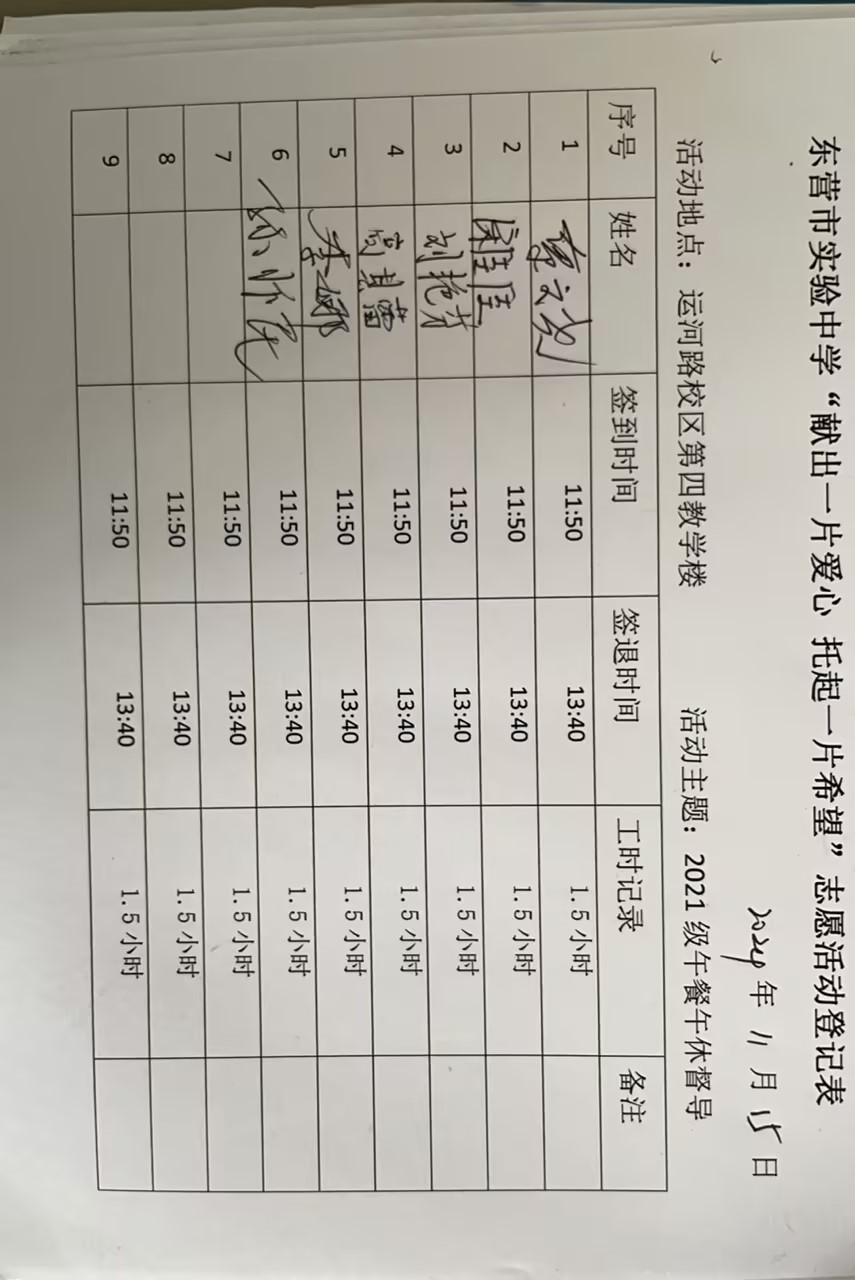 东营市实验中学“献出一片爱心 托起一片希望”志愿活动登记表
2024年 11月 15日
活动地点：运河路校区第四教学楼 活动主题：2021级午餐午休督导
序号 姓名 签到时间 签退时间 工时记录 备注
1 11:50 13:40 1.5小时
2 11:50 13:40 1.5小时
3 刘艳芳 11:50 13:40 1.5小时
4 11:50 13:40 1.5小时
5 李娜 11:50 13:40 1.5小时
6 11:50 13:40 1.5小时
7 11:50 13:40 1.5小时
8 11:50 13:40 1.5小时
9 11:50 13:40 1.5小时